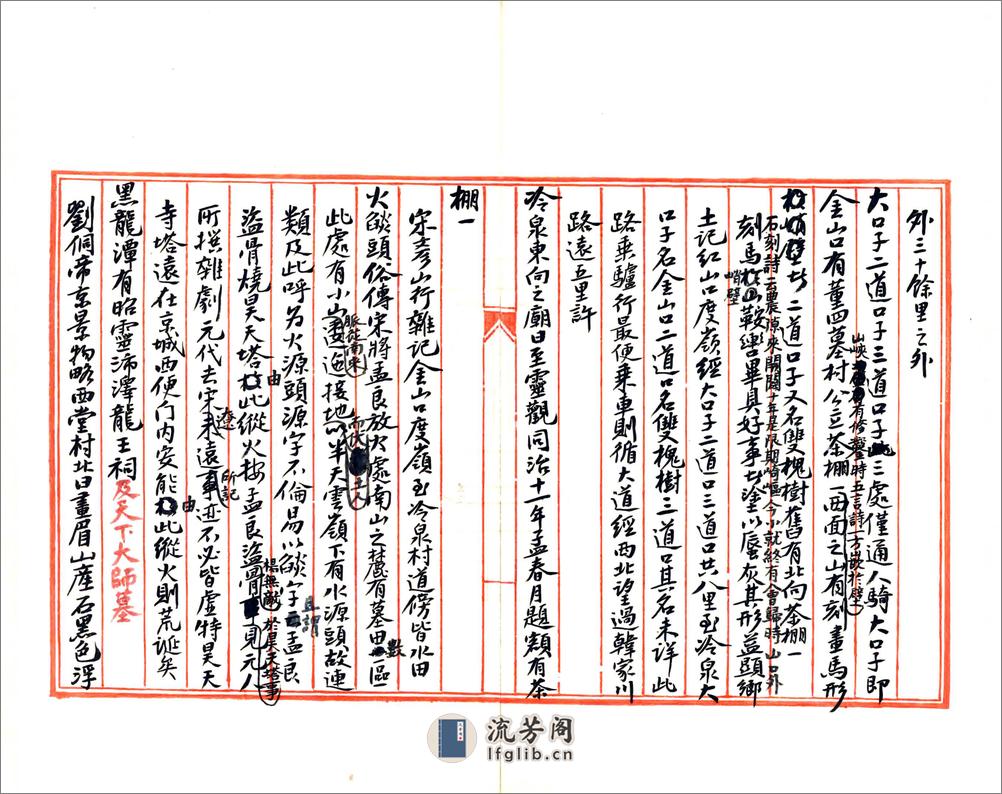 外三十餘里之外
大口子二道口子三道口子此三處僅通人騎大口子即
金山口有董四墓村公立茶棚一兩面之山有刻畫馬形
山峽有修鑿時五言詩一方嵌於壁
峭壁 二道口子又名雙槐樹舊有北向茶棚一
石刻詩云農隙來開闢十年是限期崎嶇今小就終有會歸時 山口外
刻馬鞍轡畢具好事者塗以蜃灰其形益顯鄉
峭壁
土記紅山口度嶺經大口子二道口三道口共八里至冷泉大
口子名金山口二道口名雙槐樹三道口其名未詳此
路乘驢行最便乘車則循大道經西北望過韓家川
路遠五里許
冷泉東向之廟曰至靈觀同治十一年孟春月題額有茶
棚一
宋彥山行雜記金山口度嶺至冷泉村道傍皆水田
火燄頭俗傳宋將孟良放火處南山之麓有墓田數區
此處有小山脈從南來逶迤接地而伏半天雲嶺下有水源頭故連
類及此呼為火源頭源字不倫易以燄字且謂孟良
盜骨燒昊天塔由此縱火按孟良盜楊無敵骨於昊天塔事見元人
所撰雜劇元代去宋遼未遠所記事迹不必皆虛特昊天
寺塔遠在京城西便门内安能由此縱火則荒誕矣
黑龍潭有昭靈沛澤龍王祠及天下大師墓
劉侗帝京景物略西堂村北曰畫眉山產石黑色浮
流芳阁
lfglib.cn